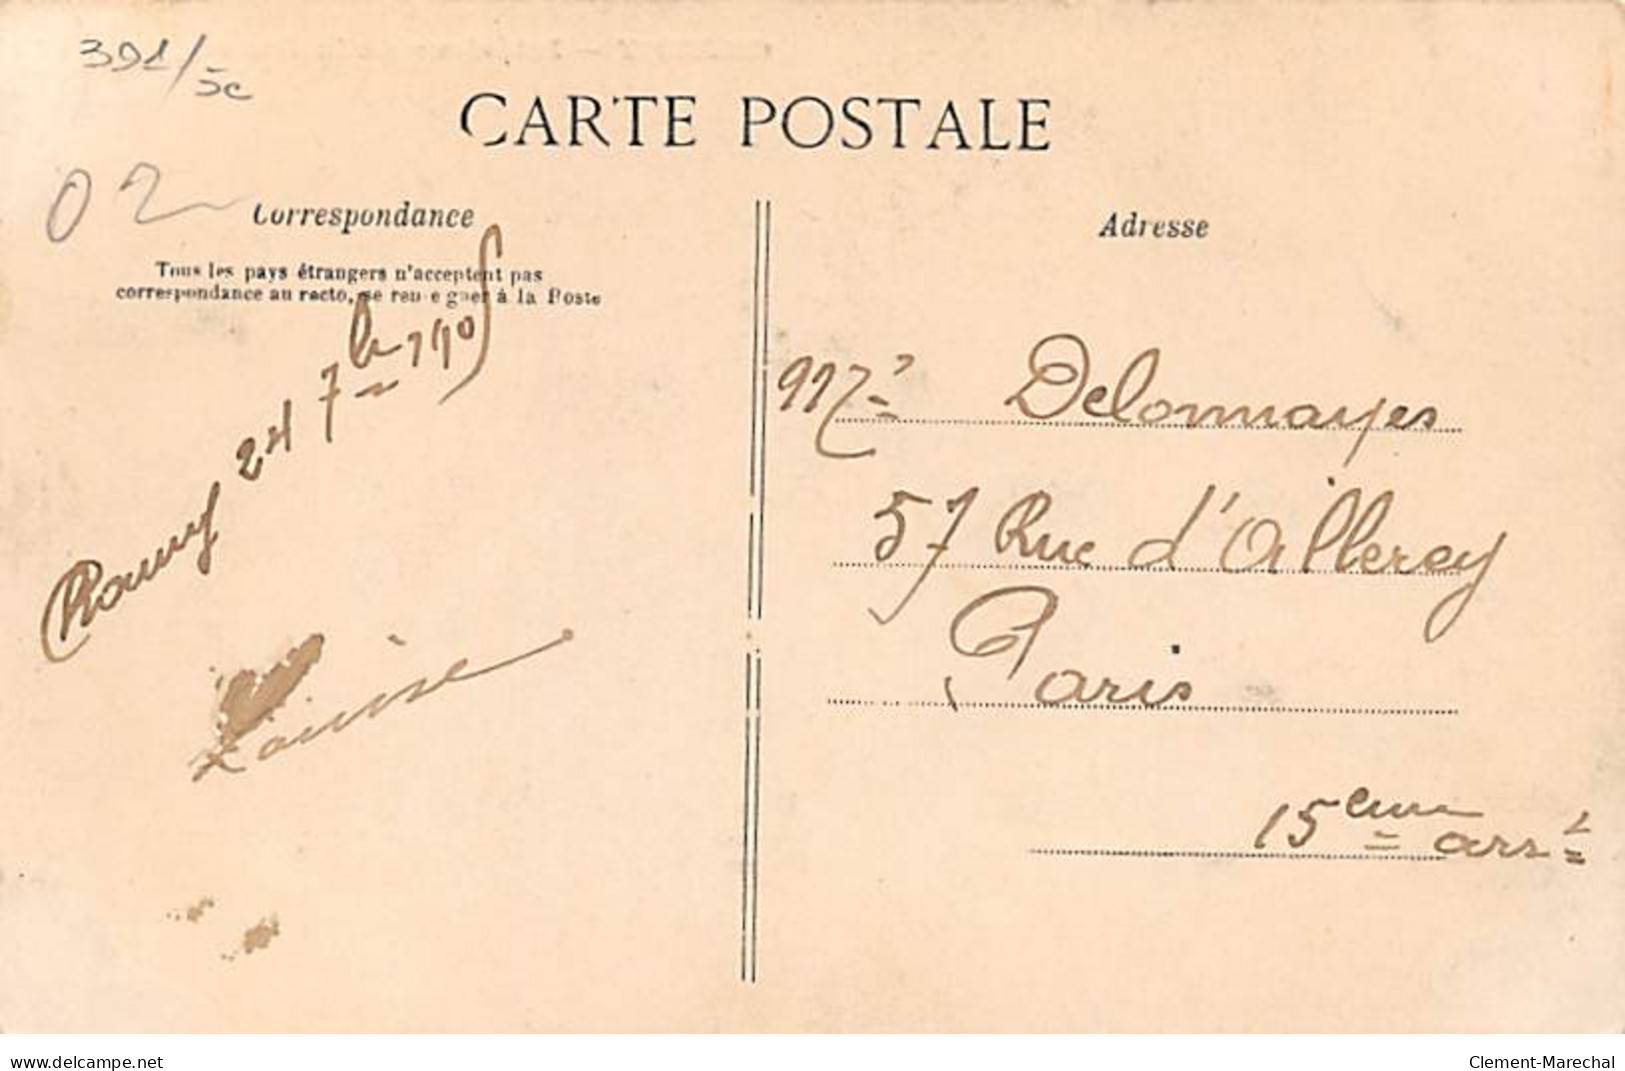 391/5c
02
CARTE POSTALE
Correspondance
Tous les pays étrangers n'acceptent pas
correspondance au recto, se renseigner à la Poste
24 7bre 1905
Louise
Adresse
Delommayes
57 Rue d'Allerey
Paris
15eme arrt
delcampe.net
Clement-Marechal